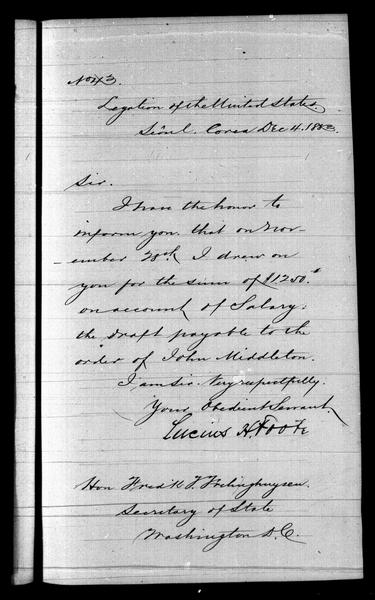 No 43.
Legation of the United States.
Séoul. Corea Dec 4. 1883.
Sir.
I have the honor to
inform you that on Nov-
-ember 28th I drew on
you for the sum of $1250.
on account of Salary:
the draft payable to the
order of John Middleton.
I am Sir. Very respectfully.
Your Obedient Servant,
Lucius H. Foote
Hon Fred'k T. Frelinghuysen.
Secretary of State
Washington D.C.